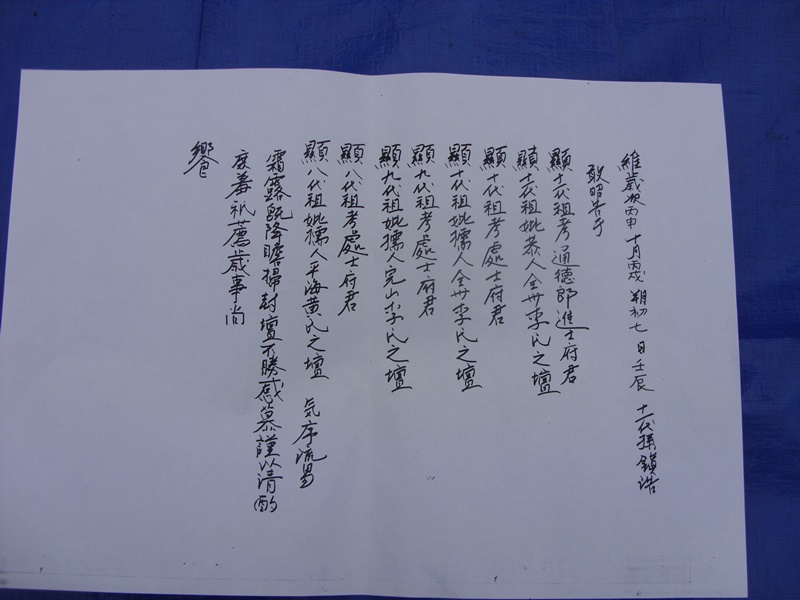 維歲次丙申十月丙戌朔初七日壬辰 十一代孫鎮浩
敢昭告于
顯十一代祖考通德郎進士府君
顯十一代祖妣恭人全州李氏之壇
顯十代祖考處士府君
顯十代祖妣孺人全州李氏之壇
顯九代祖考處士府君
顯九代祖妣孺人完山李氏之壇
顯八代祖考處士府君
顯八代祖妣孺人平海黃氏之壇 気序流易
霜露旣降瞻掃封壇不勝感慕謹以清酌
庶羞祇薦歲事尚
饗